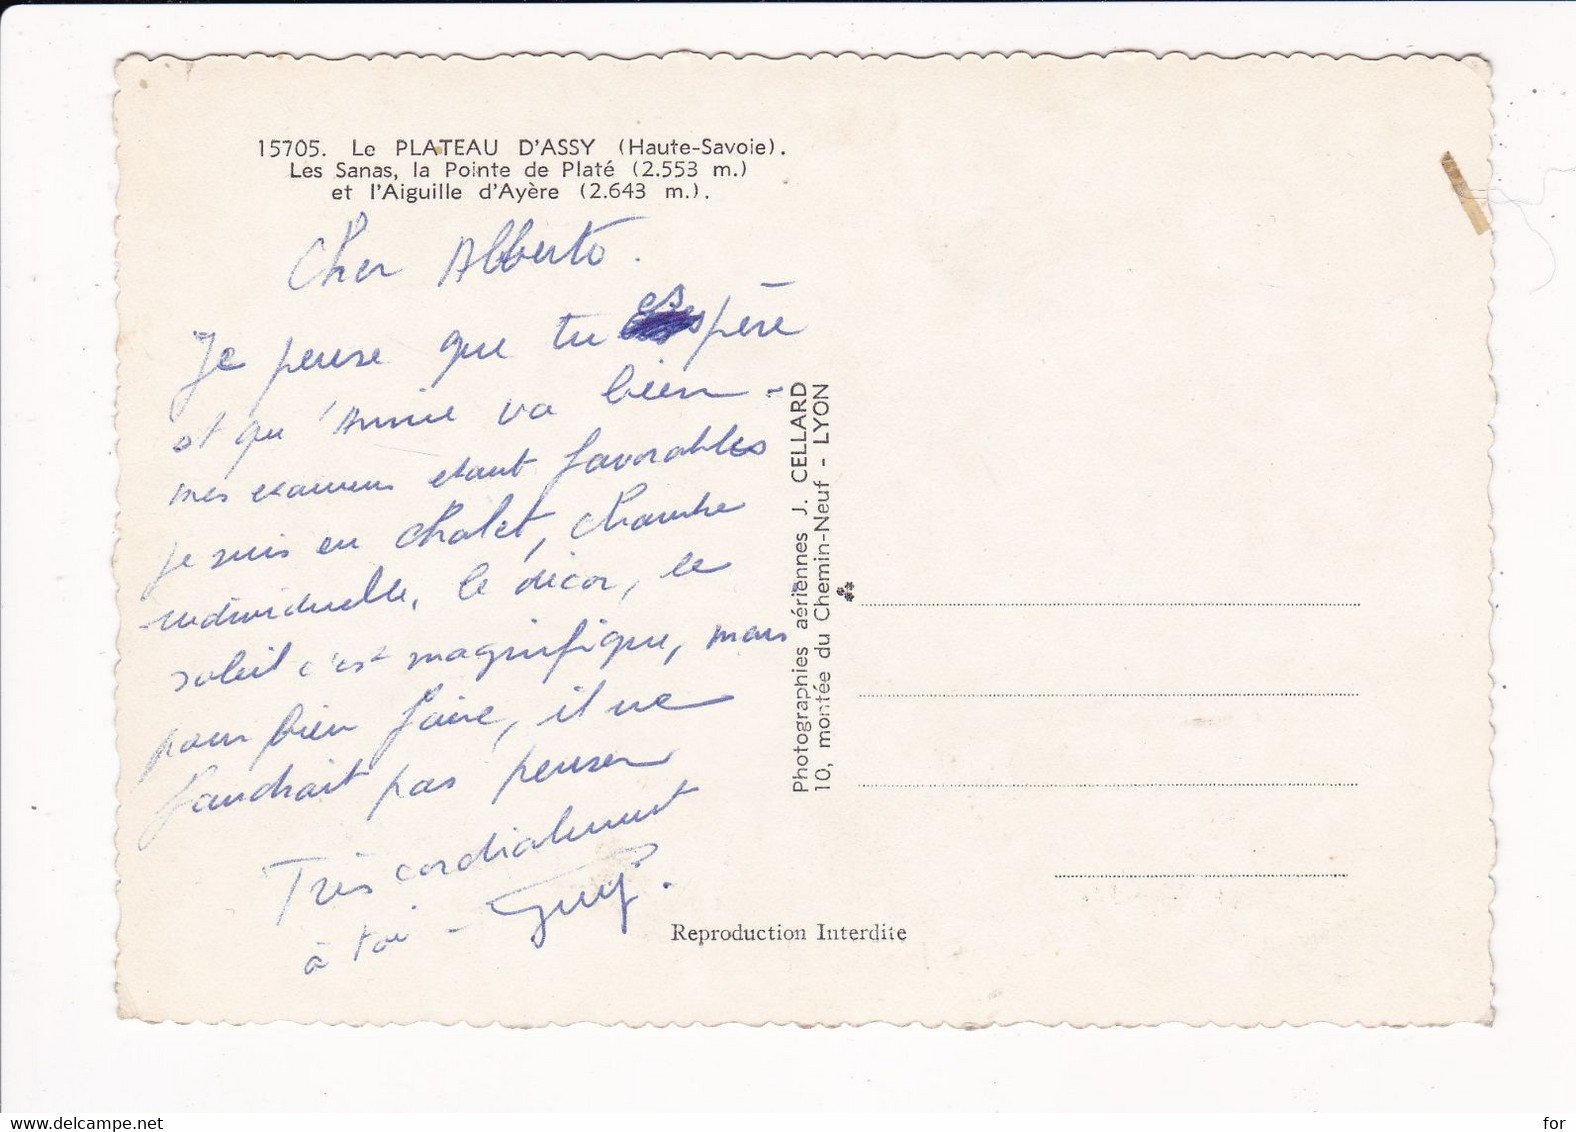 15705. Le PLATEAU D'ASSY (Haute-Savoie).
Les Sanas, la Pointe de Platé (2.553 m.)
et l'Aiguille d'Ayère (2.643 m.).
Cher Alberto.
Je pense que tu espère
et qu'Annie va bien -
mes examens etant favorables
je suis en chalet, chambre
individuelle, le décor, le
soleil c'est magnifique, mais
pour bien faire, il ne
faudrait pas penser
Très cordialement
à toi - Guy.
Photographies aériennes J. CELLARD
10, montée du Chemin-Neuf - LYON
Reproduction Interdite
www.delcampe.net
for